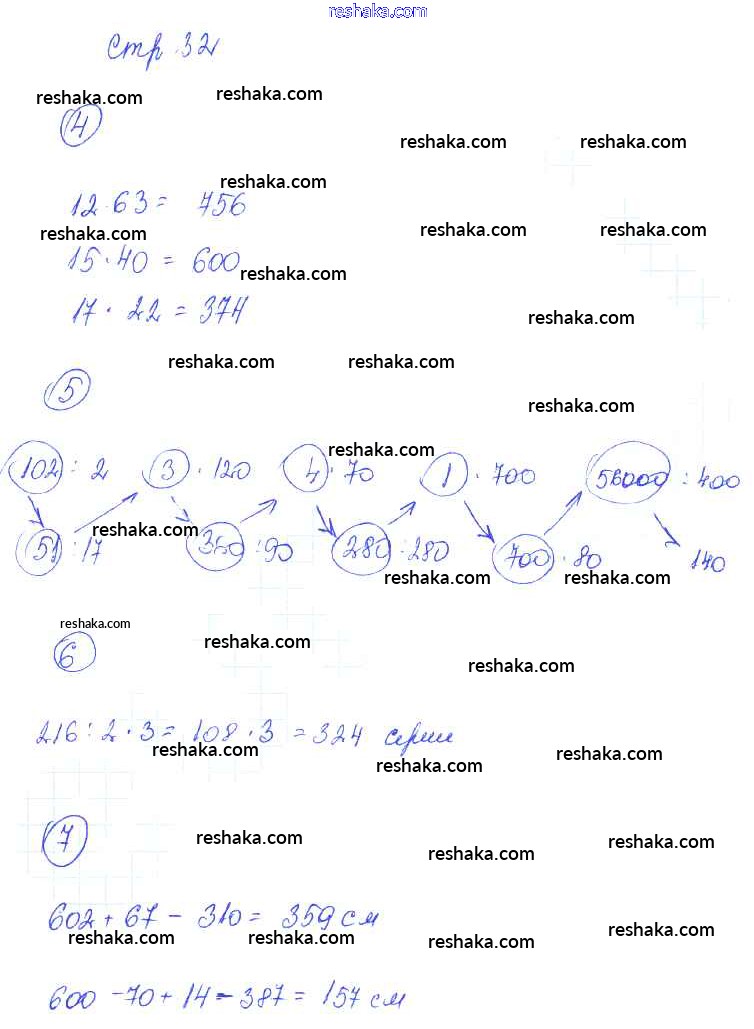 reshaka.com
стр 32
reshaka.com reshaka.com
4
reshaka.com reshaka.com
reshaka.com
12·63= 756
reshaka.com reshaka.com reshaka.com
15·40 = 600
reshaka.com
17·22 = 374
reshaka.com
reshaka.com reshaka.com
5
reshaka.com
reshaka.com
102 : 2 3 · 120 4 · 70 1 · 700 56000 : 400
reshaka.com
51 : 17 360 : 90 280 : 280 700 · 80 140
reshaka.com reshaka.com
reshaka.com
6
reshaka.com
reshaka.com
216 : 2 · 3 = 108 · 3 = 324 серии
reshaka.com reshaka.com reshaka.com
7
reshaka.com reshaka.com reshaka.com
602 + 67 - 310 = 359 см
reshaka.com reshaka.com reshaka.com reshaka.com
600 - 70 + 14 - 387 = 157 см